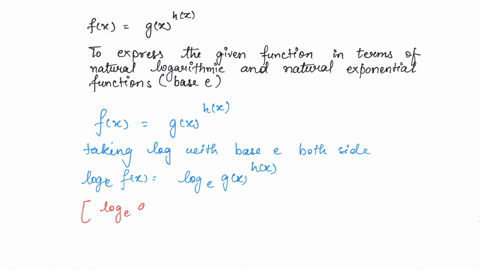 f(x) = g(x)^h(x)
To express the given function in terms of
natural logarithmic and natural exponential
functions (base e)
f(x) = g(x)^h(x)
taking log with base e both side
log_e f(x) = log_e g(x)^h(x)
[ log_e